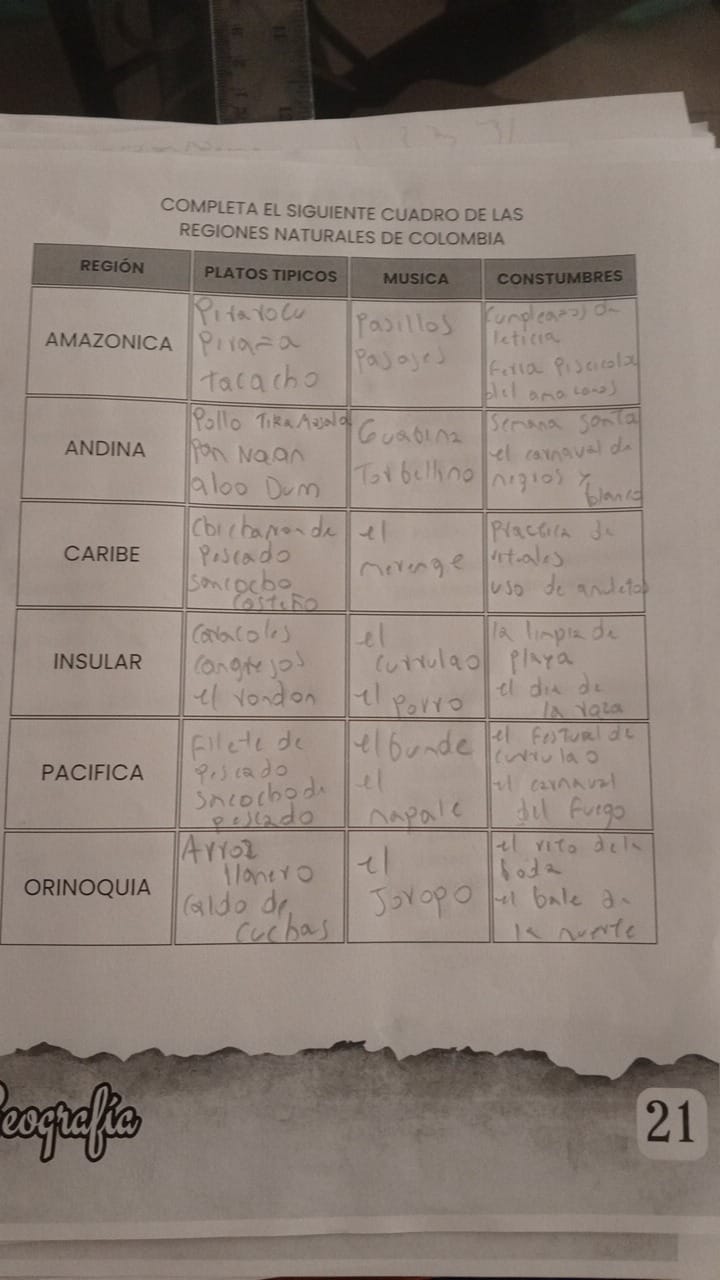 COMPLETA EL SIGUIENTE CUADRO DE LAS
REGIONES NATURALES DE COLOMBIA
REGIÓN PLATOS TIPICOS MUSICA CONSTUMBRES
AMAZONICA
Piraña
tacacho
Pasillos
Pasajes
cumpleaños de
leticia
Feria Piscicola
del amazonas
ANDINA
Pollo Tika Masala
Pan Naan
aloo Dum
Guabina
Torbellino
Semana santa
el carnaval de
negros y
blanco
CARIBE
Chicharron de
Pescado
Sancocho
Costeño
el
merenge
Practica de
rituales
uso de
INSULAR
Caracoles
Cangrejos
el rondon
el
currulao
el Porro
la limpia de
playa
el dia de
la raza
PACIFICA
Filete de
Pescado
sncocho de
pescado
el bunde
el
napale
el Festival de
currulao
el carnaval
del fuego
ORINOQUIA
Arroz
llanero
Caldo de
Cuchas
el
Joropo
el rito de la
boda
el bale de
la muerte
eografía
21